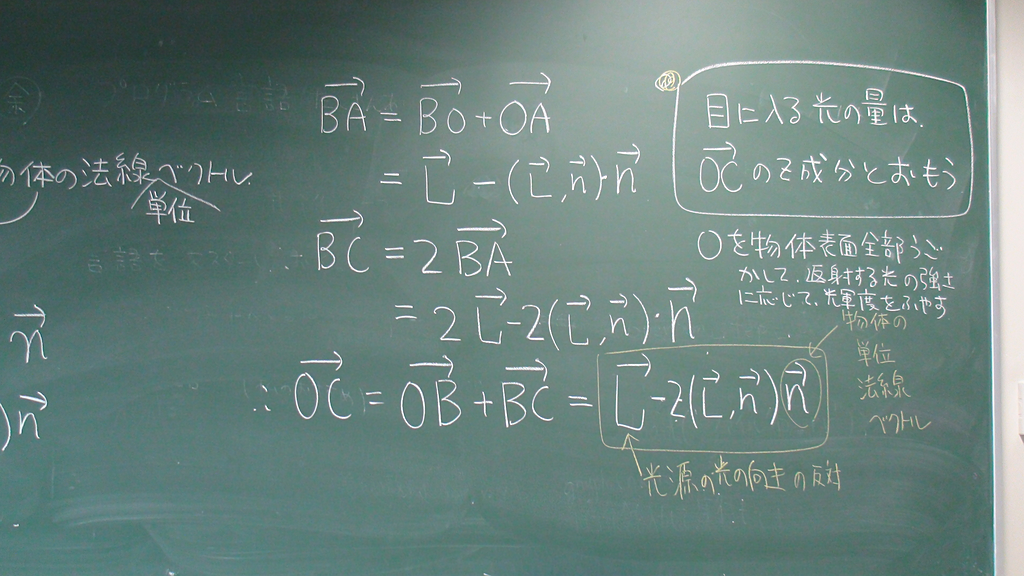 物体の法線ベクトル
単位
n→
)n→
BA→ = BO→ + OA→
= L→ - (L→, n→)・n→
BC→ = 2BA→
= 2L→ - 2(L→, n→)・n→
∴ OC→ = OB→ + BC→ = L→ - 2(L→, n→)n→
目に入る光の量は、
OC→のZ成分とおもう
Oを物体表面全部うご
かして、返射する光の強さ
に応じて、光輝度をふやす
物体の
単位
法線
ベクトル
光源の光の向きの反対